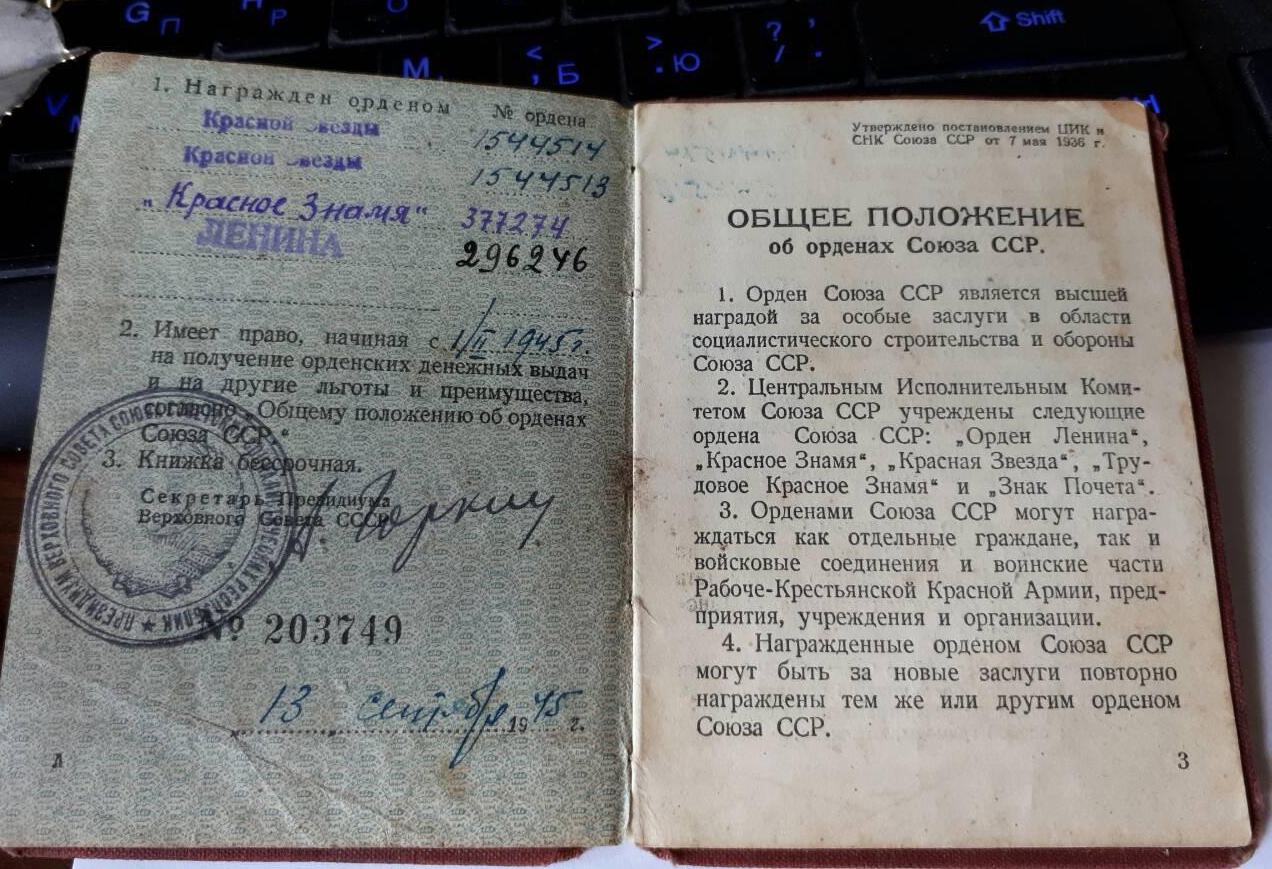 G П
Р
О
V
М
<
, Б
>
. Ю
? ,
/ .
Shift
1. Награжден орденом № ордена
Красной Звезды 1544514
Красной Звезды 1544513
„Красное Знамя“ 377274
ЛЕНИНА 296246
2. Имеет право, начиная с 1/II 1945г.
на получение орденских денежных выдач
и на другие льготы и преимущества,
согласно „Общему положению об орденах
Союза ССР“
3. Книжка бессрочная.
Секретарь Президиума
Верховного Совета СССР
ПРЕЗИДИУМ ВЕРХОВНОГО СОВЕТА СОЮЗА СОВЕТСКИХ СОЦИАЛИСТИЧЕСКИХ РЕСПУБЛИК
№ 203749
13 сентября 1945 г.
Л
Утверждено постановлением ЦИК и
СНК Союза ССР от 7 мая 1936 г.
ОБЩЕЕ ПОЛОЖЕНИЕ
об орденах Союза ССР.
1. Орден Союза ССР является высшей
наградой за особые заслуги в области
социалистического строительства и обороны
Союза ССР.
2. Центральным Исполнительным Коми-
тетом Союза ССР учреждены следующие
ордена Союза ССР: „Орден Ленина“,
„Красное Знамя“, „Красная Звезда“, „Тру-
довое Красное Знамя“ и „Знак Почета“.
3. Орденами Союза ССР могут награ-
ждаться как отдельные граждане, так и
войсковые соединения и воинские части
Рабоче-Крестьянской Красной Армии, пред-
приятия, учреждения и организации.
4. Награжденные орденом Союза ССР
могут быть за новые заслуги повторно
награждены тем же или другим орденом
Союза ССР.
3